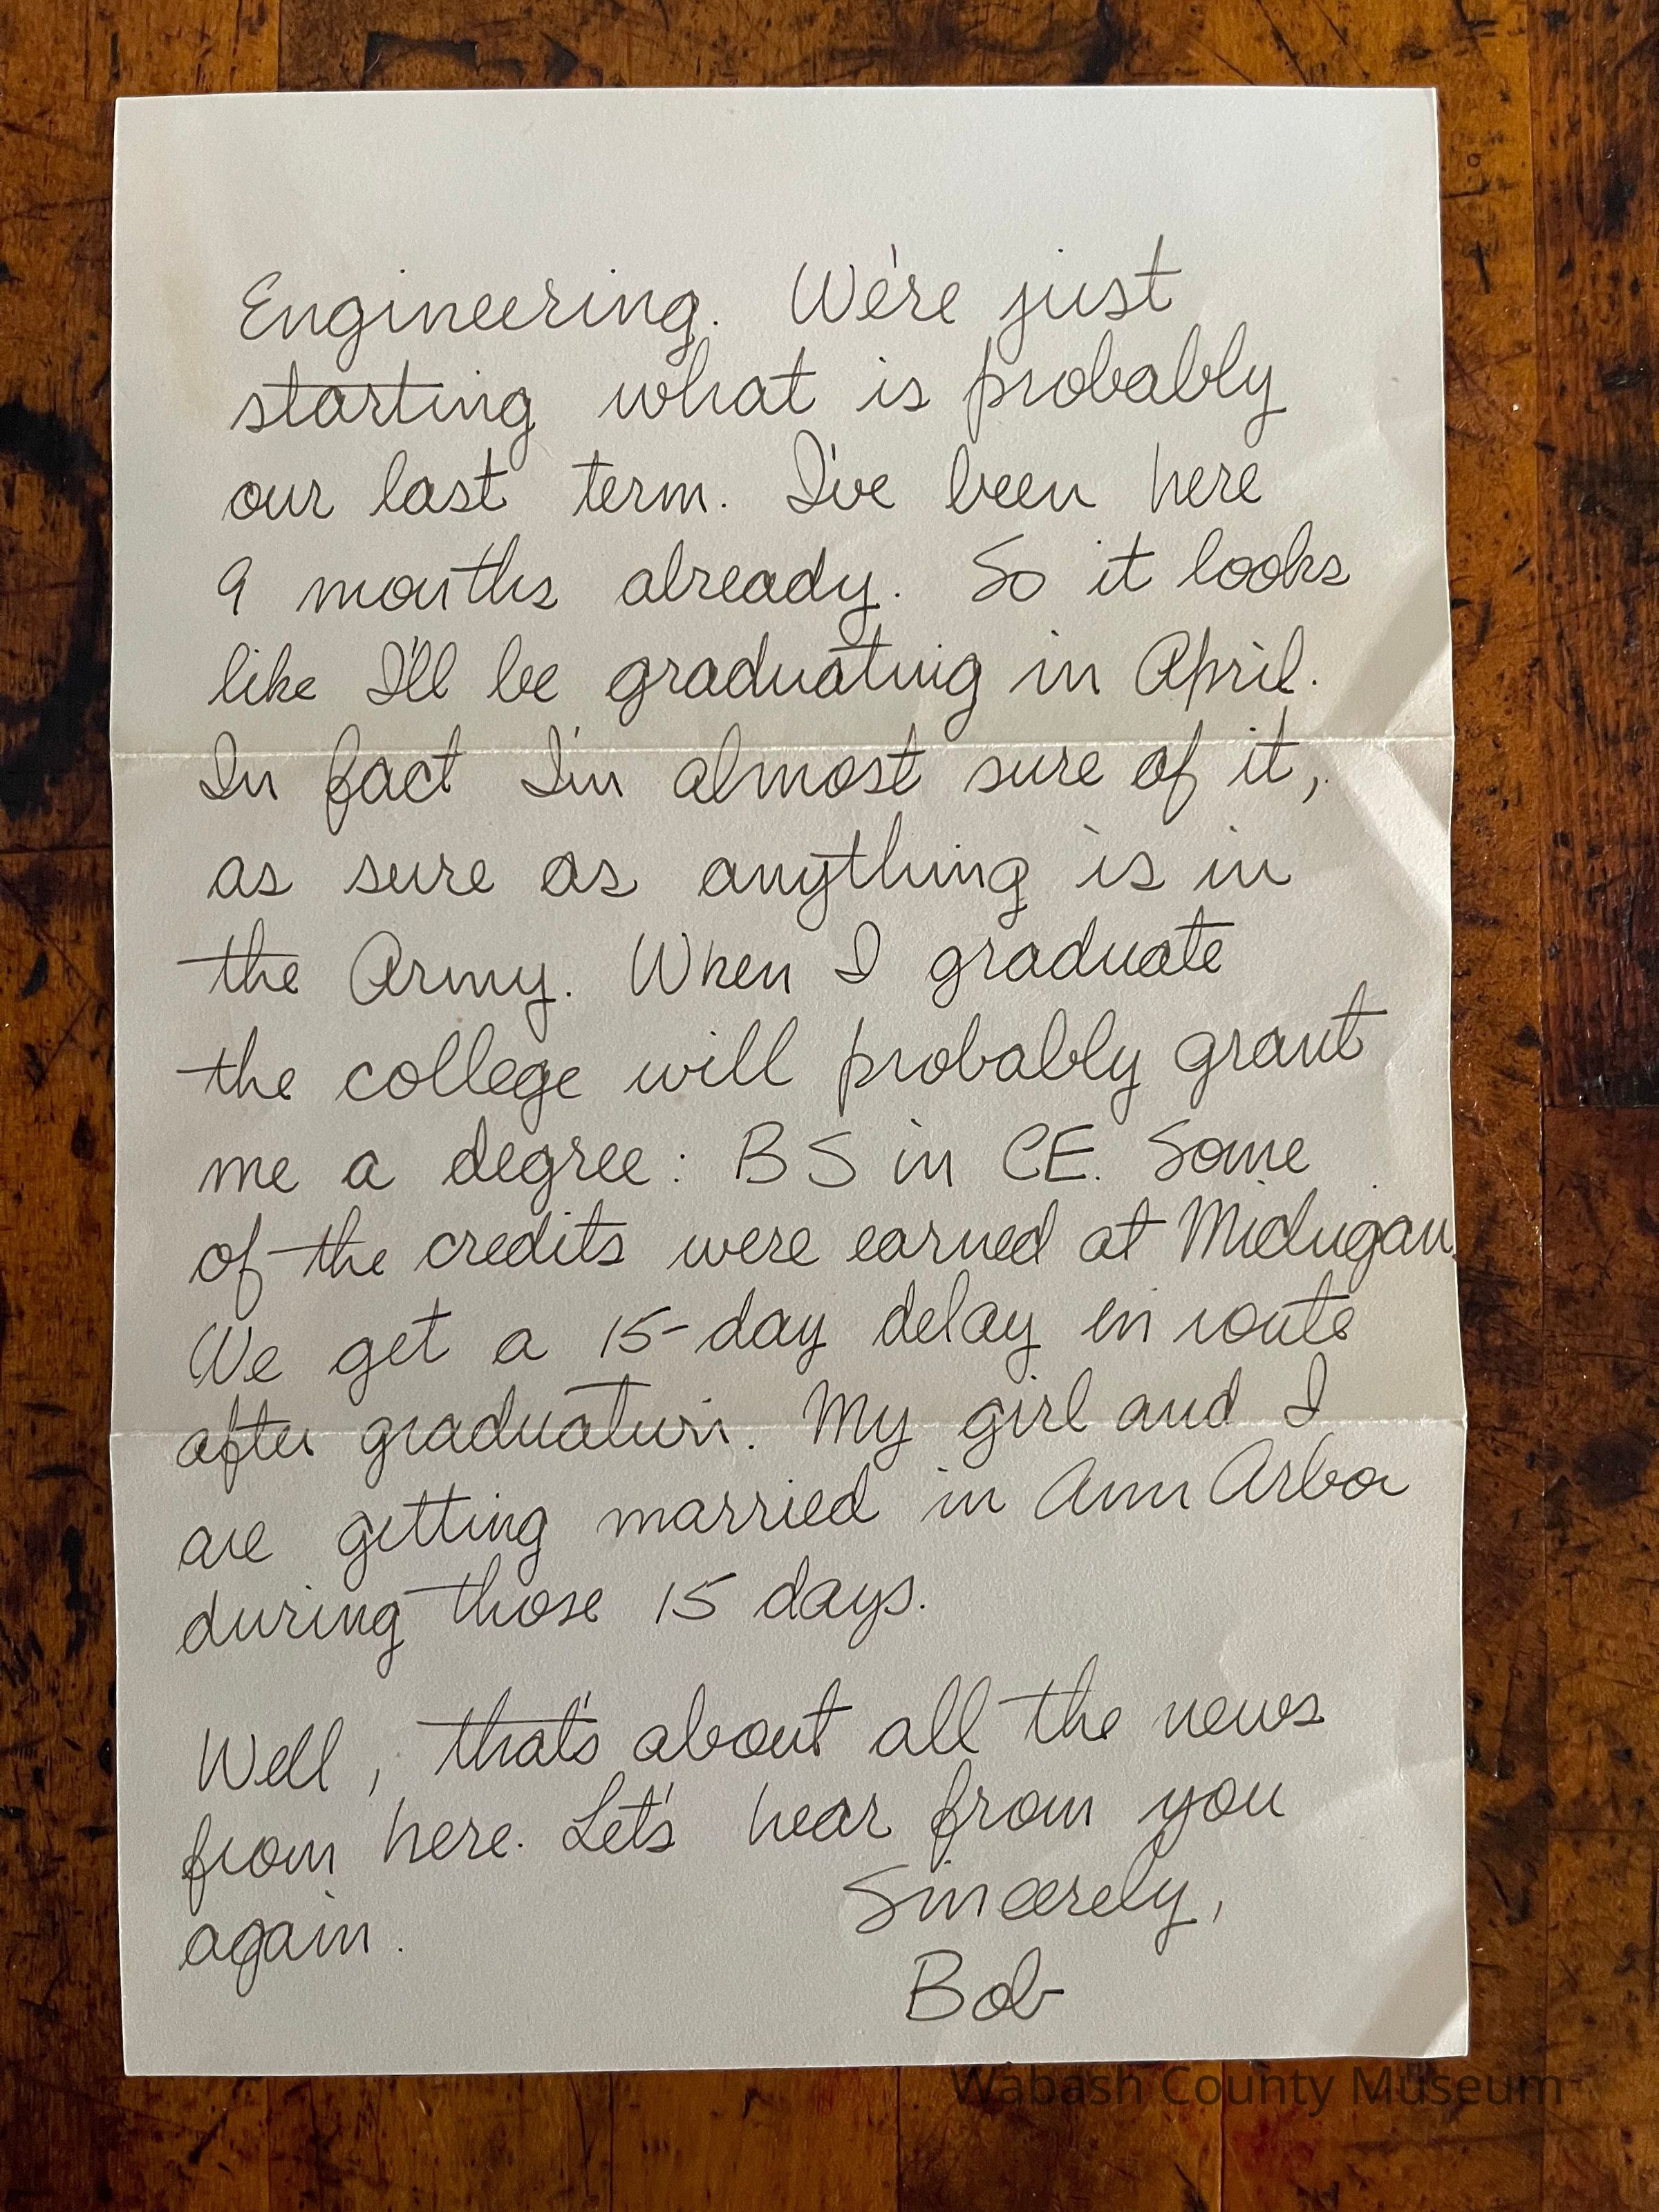 Engineering. We're just
starting what is probably
our last term. I've been here
9 months already. So it looks
like I'll be graduating in April.
In fact I'm almost sure of it,
as sure as anything is in
the Army. When I graduate
the college will probably grant
me a degree: BS in CE. Some
of the credits were earned at Michigan.
We get a 15-day delay en route
after graduation. My girl and I
are getting married in Ann Arbor
during those 15 days.
Well, that's about all the news
from here. Let's hear from you
again.
Sincerely,
Bob
Wabash County Museum